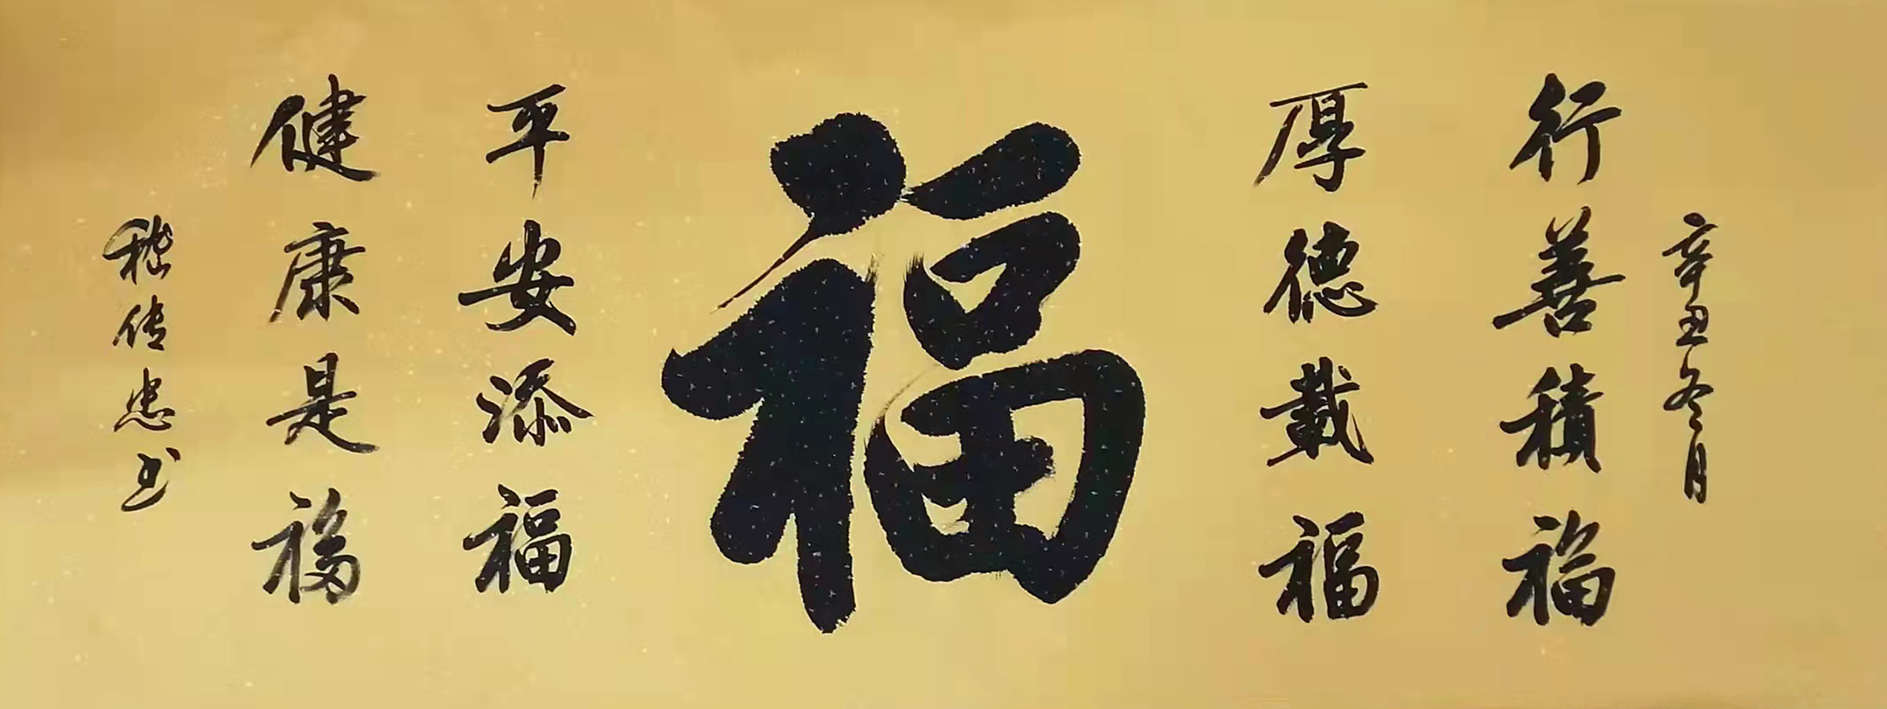 辛丑冬月
行善積福
厚德載福
福
平安添福
健康是福
嵇传忠书